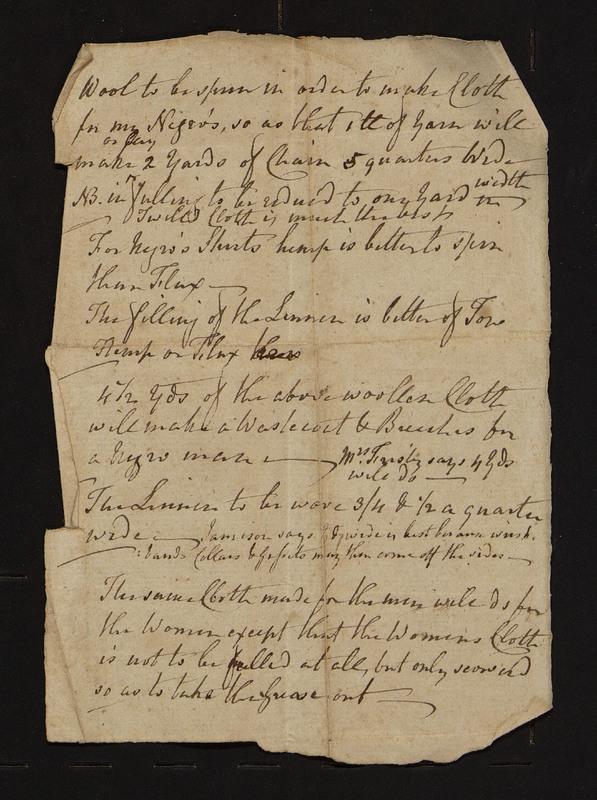 Wool to be spun in order to make Cloth
for my Negro's, so as that 1 lb of Yarn will
or Say
make 2 Yards of Chain 5 quarters Wide
NB. in fulling to be reduced to one Yard in width
Twill'd Cloth is much the best
For Negro's Shirts hemp is better to spin
than Flax
The filling of the Linnen is better of Tow
Hemp or Flax
4 1/2 Yds of the above woollen Cloth
will make a Wastecoat & Breeches for
a Negro man
Mrs says 4 Yds
will do
The Linnen to be wove 3/4 & 1/2 a quarter
wide Jameson says yd wide is best because wrist-
:bands Collars & Gussets may then come off the sides
The same Cloth made for the men will do for
the Women except that the Womens Cloth
is not to be fulled at all, but only scowered
so as to take the Grease out